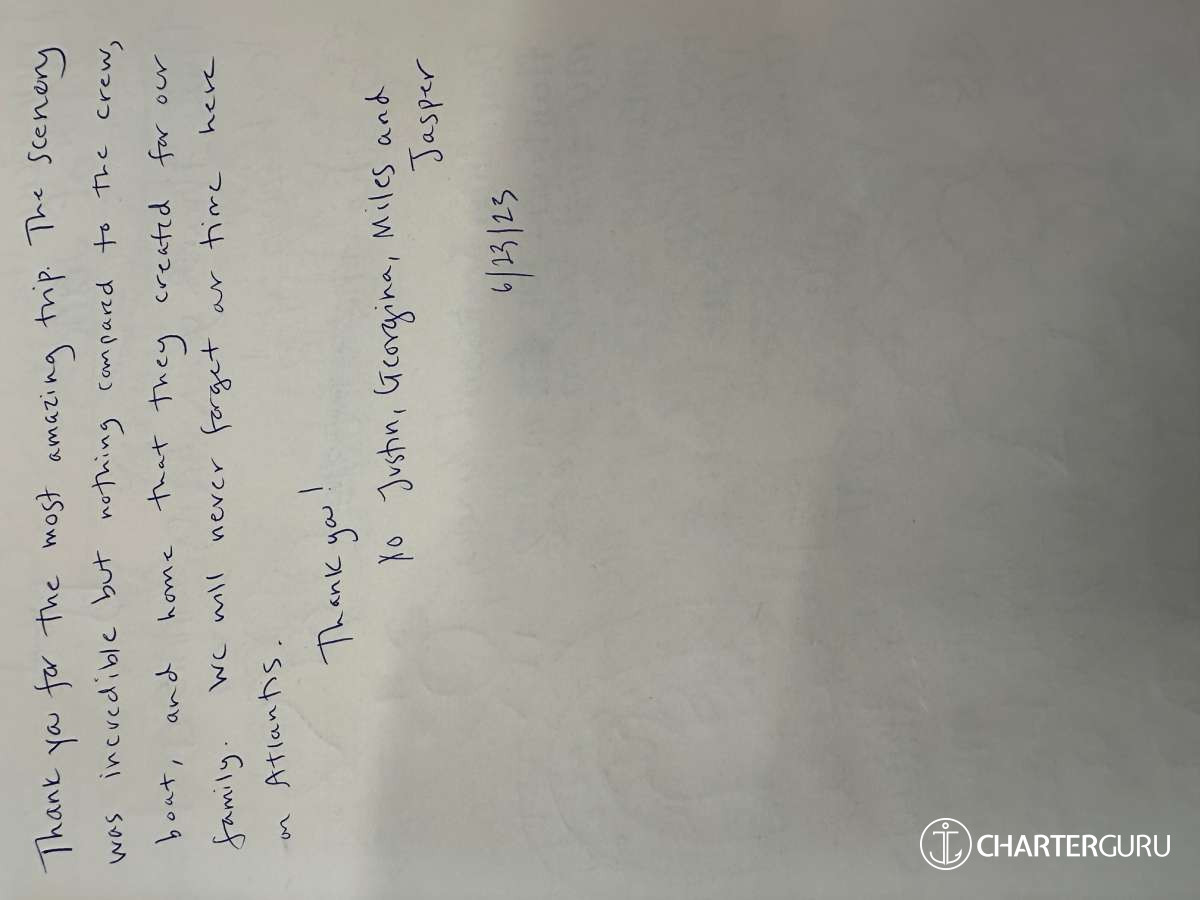 Thank you for the most amazing trip. The scenery
was incredible but nothing compared to the crew,
boat, and home that they created for our
family. We will never forget our time here
on Atlantis.
Thank you!
XO Justin, Georgina, Miles and
Jasper
6/23/23
CHARTERGURU